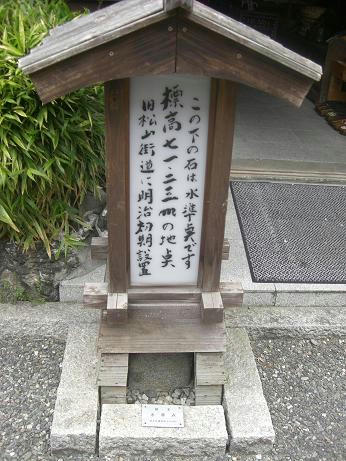 この下の石は水準奌です
標高七一・二三mの地奌
旧松山街道に明治初期設置